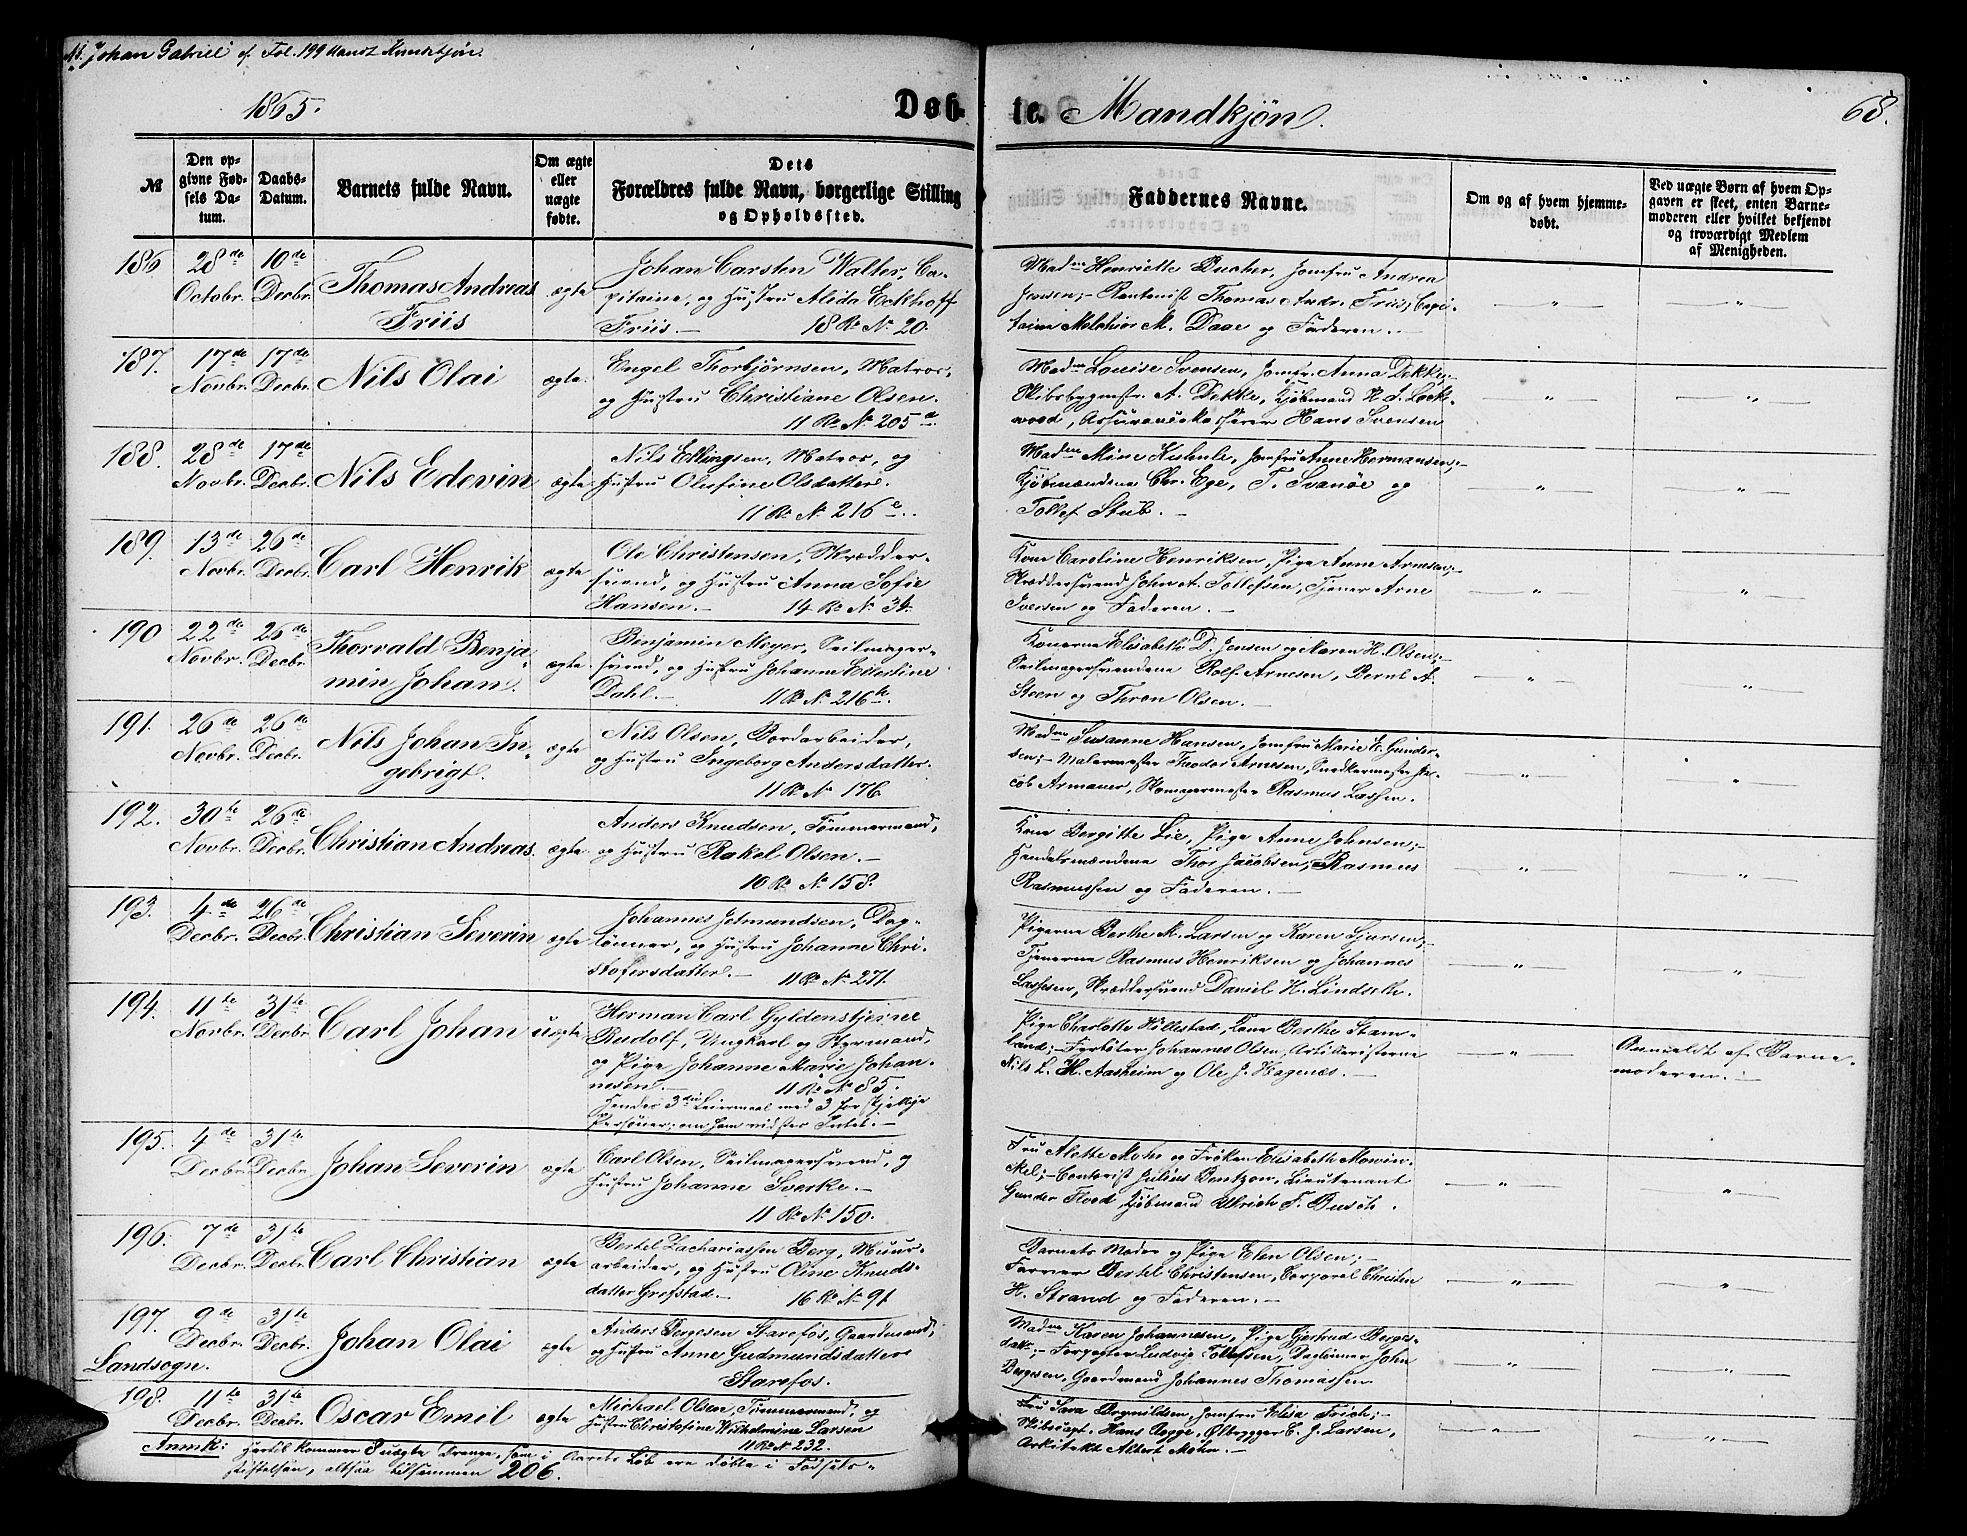 Johan Gabriel cf. Fol. 199 blandt Kvindekjøn.
1865.
Døb-
te. Mandkjøn.
68.
№
Den op-
givne Fød-
sels Da-
tum.
Daabs-
Datum.
Barnets fulde Navn.
Om ægte
eller
uægte
fødte.
Dets
Forældres fulde Navn, borgerlige Stilling
og Opholdssted.
Faddernes Navne.
Om og af hvem hjemme-
døbt.
Ved uægte Børn af hvem Op-
gaven er skeet, enten Barne-
moderen eller hvilket bekjendt
og troværdigt Medlem
af Menigheden.
186 28de Octobr. 10de Decbr. Thomas Andreas
Friis
ægte
Johan Carsten Walter, Ca-
pitaine, og Hustru Alida Eckhoff
Friis.— 18 R. № 20.
Madme Henriette Ducher, Jomfru Andrea
Jensen;– Rentenist Thomas Andr. Friis, Capi-
taine Melchior M. Daae og Faderen.–
187. 17de Novbr. 17de Decbr. Nils Olai
ægte.
Engel Thorbjørnsen, Matros,
og Hustru Christiane Olsen.
11 R. № 205 d.
Madme Louise Svensen, Jomfr. Anna Dekke;–
Skibsbygmstr. A. Dekke, Kjøbmand H. d. Lock-
wood, Assurance Kasserer Hans Svensen
188. 28de Novbr. 17de Decbr. Nils Edevin
ægte
Nils Ellingsen, Matros, og
Hustru Olufine Olsdatter.
11 R. № 216 c.
Madme Mine Kuhnle, Jomfru Anne Hermansen;–
Kjøbmændene Chr. Ege, T. Svanøe og
Tollef Stub.–
189. 13de Novbr. 26de Decbr. Carl Henrik
ægte
Ole Christensen, Skrædder-
svend, og Hustru Anna Sofie
Hansen.– 14 R. № 34.
Kone Caroline Henriksen, Pige Anne Arnesen;–
Skræddersvend John A. Tollefsen, Tjener Arne
Iversen og Faderen.–
190 22de Novbr. 26de Decbr. Thorvald Benja-
min Johan.
ægte
Benjamin Meyer, Seilmager-
svend, og Hustru Johanne Ederline
Dahl.– 11 R. № 216 b.
Konerne Elisabeth D. Jensen og Maren H. Olsen;–
Seilmagersvendene Rolf Arnesen, Bernt A.
Steen og Thron Olsen.–
191. 26de Novbr. 26de Decbr. Nils Johan In-
gebrigt.
ægte
Nils Olsen, Bordarbeider,
og Hustru Ingeborg Andersdatter.
11 R. № 176
Madme Susanne Hansen, Jomfru Marie E. Gunder-
sen;– Malermester Theodor Arnesen, Snedkermester Ja-
cob Armauer, Skomagermester Rasmus Lassen.
192. 30te Novbr. 26de Decbr. Christian Andreas.
ægte
Anders Knudsen, Tømmermand,
og Hustru Rakel Olsen.–
10 R. № 158.
Kone Bergitte Lie, Pige Anne Johnsen;–
Handelsmændene Thor Jacobsen, Rasmus
Rasmussen og Faderen.–
193. 4de Decbr. 26de Decbr. Christian Severin
ægte
Johannes Jetmundsen, Dag-
lønner, og Hustru Johanne Chri-
stofersdatter.– 11 R. № 271.
Pigerne Berthe M. Larsen og Karen Sjursen;–
Tjenerne Rasmus Henriksen og Johannes
Lassen, Skræddersvend Daniel H. Lindseth.
194. 11te Novbr. 31te Decbr. Carl Johan
uægte
Herman Carl Gyldenstjerne
Rudolf, Ungkarl og Styrmand,
og Pige Johanne Marie Johan-
nesen.– 11 R. № 85.
Hendes 3die Leiermaal med 3 forskjellige
Personer; om ham vidstes Intet.–
Pige Charlotte Hillestad, Kone Berthe Stam-
land;– Fyrbøter Johannes Olsen, Artilleristerne
Nils L. H. Aasheim og Ole J. Hagenæs.–
Anmeldt af Barne-
moderen.–
195. 4de Decbr. 31te Decbr. Johan Severin
ægte
Carl Olsen, Seilmagersvend, og
Hustru Johanne Sverke.–
11 R. № 150.
Fru Alette Mohr og Frøken Elisabeth Mowin-
kel;– Contorist Julius Bentzon, Lieutenant
Gunder Flood, Kjøbmand Ulrich F. Busch.
196. 7de Decbr. 31te Decbr. Carl Christian
ægte
Bertel Zachariassen Berg, Muur-
arbeider, og Hustru Oline Knuds-
datter Grefstad.– 16 R. № 91
Barnets Moder og Pige Elen Olsen;–
Farver Bertel Christensen, Corporal Christen
H. Strand og Faderen.–
197. 9de Decbr. 31te Decbr. Johan Olai
Landsogn.
ægte
Anders Bergesen Starefos, Gaardmand,
og Hustru Anne Gudmundsdatter
Starefos.
Madme Karen Johannesen, Pige Gjertrud Berges-
datt.;– Forpagter Ludvig Tollefsen, Daglønner John
Bergesen, Gaardmand Johannes Thomassen
198. 11te Decbr. 31te Decbr. Oscar Emil
ægte
Michael Olsen, Tømmermand, og
Hustru Christofine Wilhelmine Larsen
11 R. № 232.
Fru Sara Brynildsen, Jomfru Elisa Frich;–
Skibscapt. Hans Aagge, Ølbrygger C. J. Larsen,
Arkitekt Albert Mohn.–
Anmk: Hertil kommer 8 uægte Drenge, som i Aarets Løb ere døbte i Fødsels-
stiftelsen, altsaa tilsammen 206.